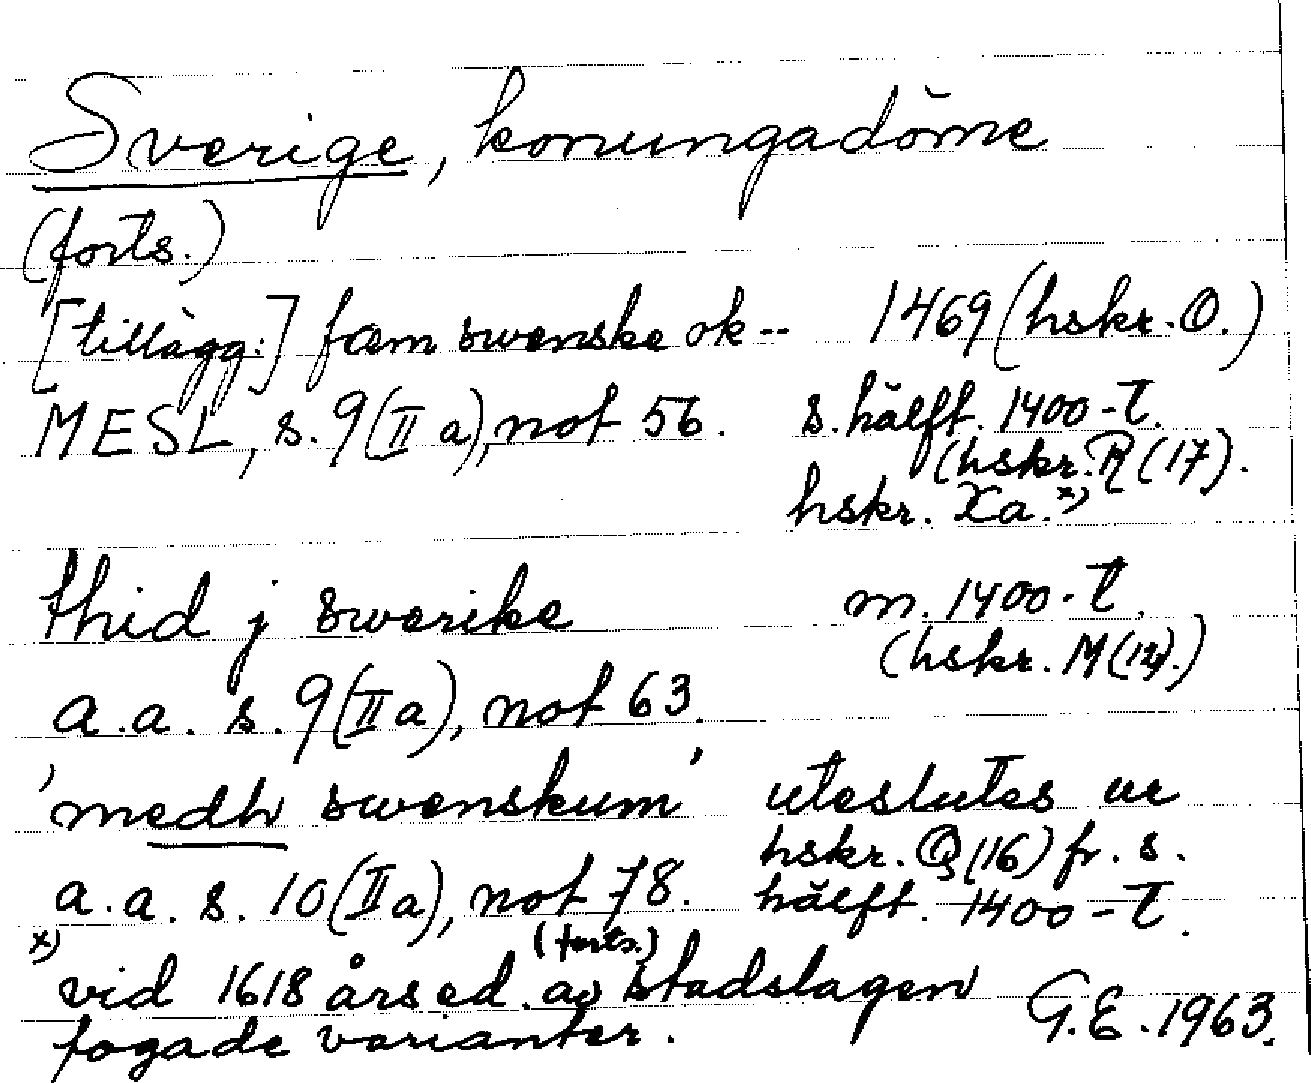 Sverige, konungadöme
(forts.)
[tillägg:] fæm swenske ok-- 1469 (hskr. O.)
MESL, s. 9 (II a), not 56. s. hälft. 1400-t.
(hskr. R (17).
hskr. Xa. x)
thid j swerike m. 1400-t.
(hskr. M (12).)
a.a. s. 9 (II a), not 63.
'medh swenskum' uteslutes ur
hskr. Q (16) fr. s.
a.a. s. 10 (II a), not 78. hälft. 1400-t.
(forts.)
x) vid 1618 års ed. av Stadslagen
fogade varianter. G.E. 1963.